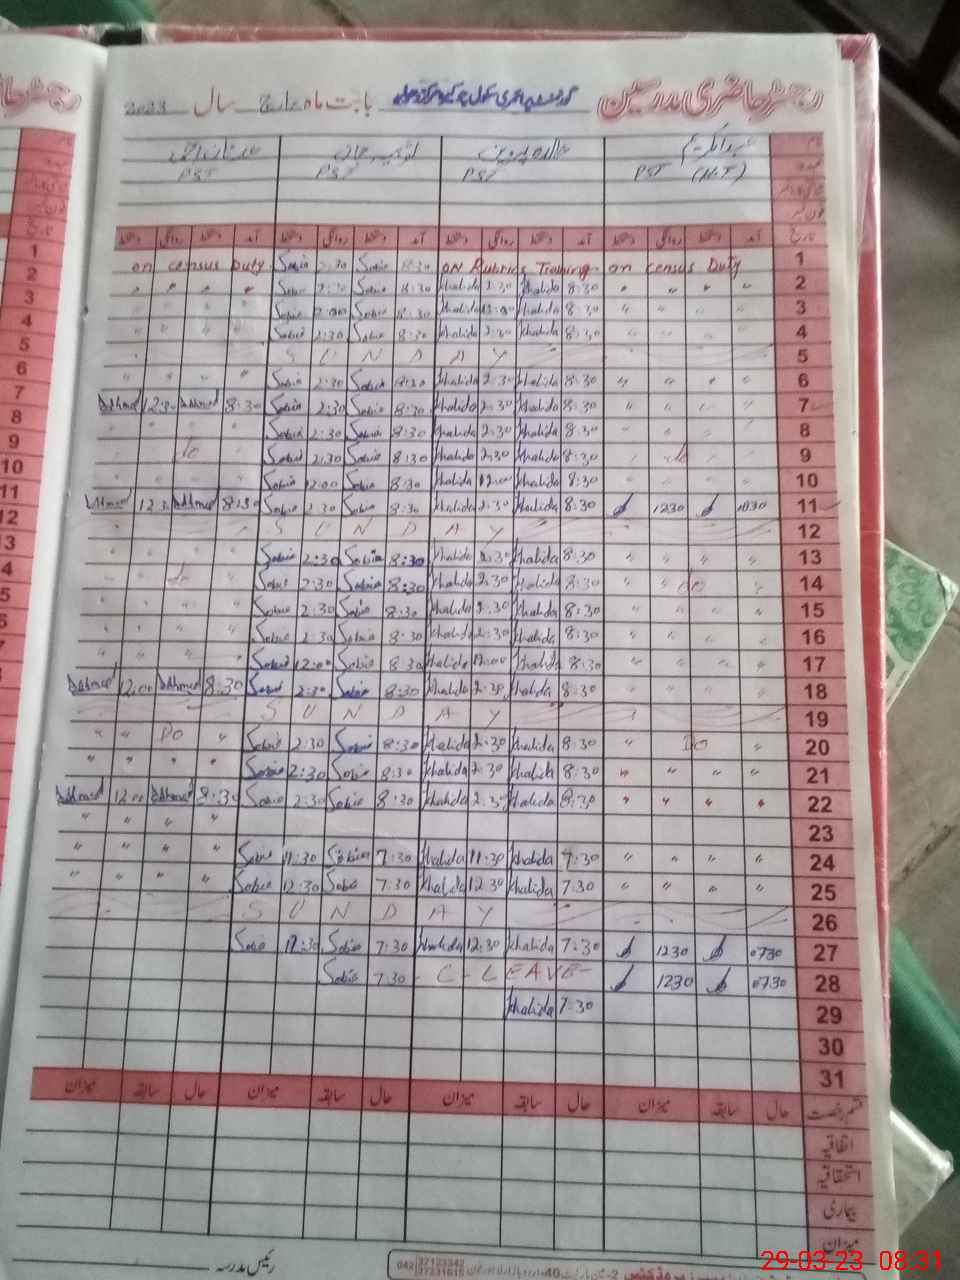 رجسٹر حاضری مدرسین بابت ماہ مارچ سال 2023
PST (H.T) PST PST PST
تاریخ آمد دستخط روانگی دستخط آمد دستخط روانگی دستخط آمد دستخط روانگی دستخط آمد دستخط روانگی دستخط
on census Duty Sobia 2:30 Sobia 8:30 on Rubrics Training on census Duty 1
" " " " Sobia 2:30 Sobia 8:30 Khalida 2:30 Khalida 8:30 " " " " 2
Sobia 12:00 Sobia 8:30 Khalida 12:00 Khalida 8:30 " " " " 3
" " " Sobia 2:30 Sobia 8:30 Khalida 2:30 Khalida 8:30 " " " " 4
S U N D A Y 5
" " " " Sobia 2:30 Sobia 8:30 Khalida 2:30 Khalida 8:30 " " " " 6
Ahmed 12:30 Ahmed 8:30 Sobia 2:30 Sobia 8:30 Khalida 2:30 Khalida 8:30 " " " " 7
" " " " Sobia 2:30 Sobia 8:30 Khalida 2:30 Khalida 8:30 8
" do " Sobia 2:30 Sobia 8:30 Khalida 2:30 Khalida 8:30 " do " 9
" " " " Sobia 12:00 Sobia 8:30 Khalida 12:00 Khalida 8:30 10
Ahmed 12:30 Ahmed 8:30 Sobia 2:30 Sobia 8:30 Khalida 2:30 Khalida 8:30 1230 0830 11
S U N D A Y 12
" " " Sobia 2:30 Sobia 8:30 Khalida 2:30 Khalida 8:30 " " " " 13
" do " Sobia 2:30 Sobia 8:30 Khalida 2:30 Khalida 8:30 " do " 14
" " " " Sobia 2:30 Sobia 8:30 Khalida 2:30 Khalida 8:30 " " " " 15
" " " " Sobia 2:30 Sobia 8:30 Khalida 2:30 Khalida 8:30 " " " " 16
" " " " Sobia 12:00 Sobia 8:30 Khalida 12:00 Khalida 8:30 " " " " 17
Ahmed 12:00 Ahmed 8:30 Sobia 2:30 Sobia 8:30 Khalida 2:30 Khalida 8:30 " " " " 18
S U N D A Y 19
" " Do " Sobia 2:30 Sobia 8:30 Khalida 2:30 Khalida 8:30 " Do " 20
" " " " Sobia 2:30 Sobia 8:30 Khalida 2:30 Khalida 8:30 " " " " 21
Ahmed 12:00 Ahmed 8:30 Sobia 2:30 Sobia 8:30 Khalida 2:30 Khalida 8:30 " " " " 22
" " " " 23
" " " " Sobia 11:30 Sobia 7:30 Khalida 11:30 Khalida 7:30 " " " " 24
" " " " Sobia 12:30 Sobia 7:30 Khalida 12:30 Khalida 7:30 " " " " 25
S U N D A Y 26
Sobia 12:30 Sobia 7:30 Khalida 12:30 Khalida 7:30 1230 0730 27
Sobia 7:30 - C - LEAVE - 1230 0730 28
Khalida 7:30 29
30
31
قسم رخصت حال سابقہ میزان حال سابقہ میزان حال سابقہ میزان حال سابقہ میزان
اتفاقیہ
استحقاقیہ
بیماری
میزان
رئیس مدرسہ
042 37123342
37331615
29-03-23 08:31